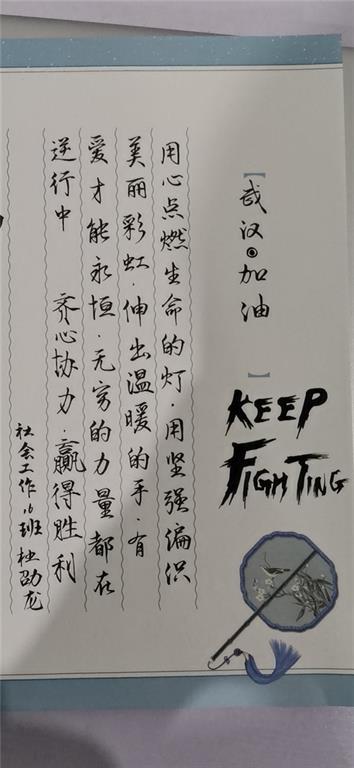 【武汉·加油】
KEEP
FIGHTING
用心点燃生命的灯.用坚强编织
美丽彩虹.伸出温暖的手.有
爱才能永恒.无穷的力量都在
逆行中 齐心协力.赢得胜利
社会工作16班 杜劲龙